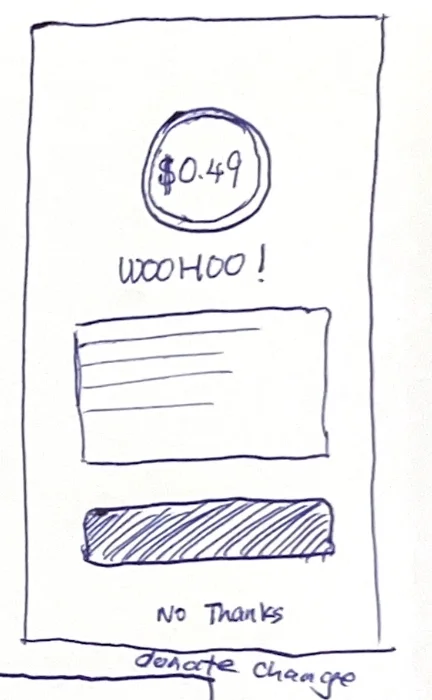 $0.49
WOOHOO!
No Thanks
donate change